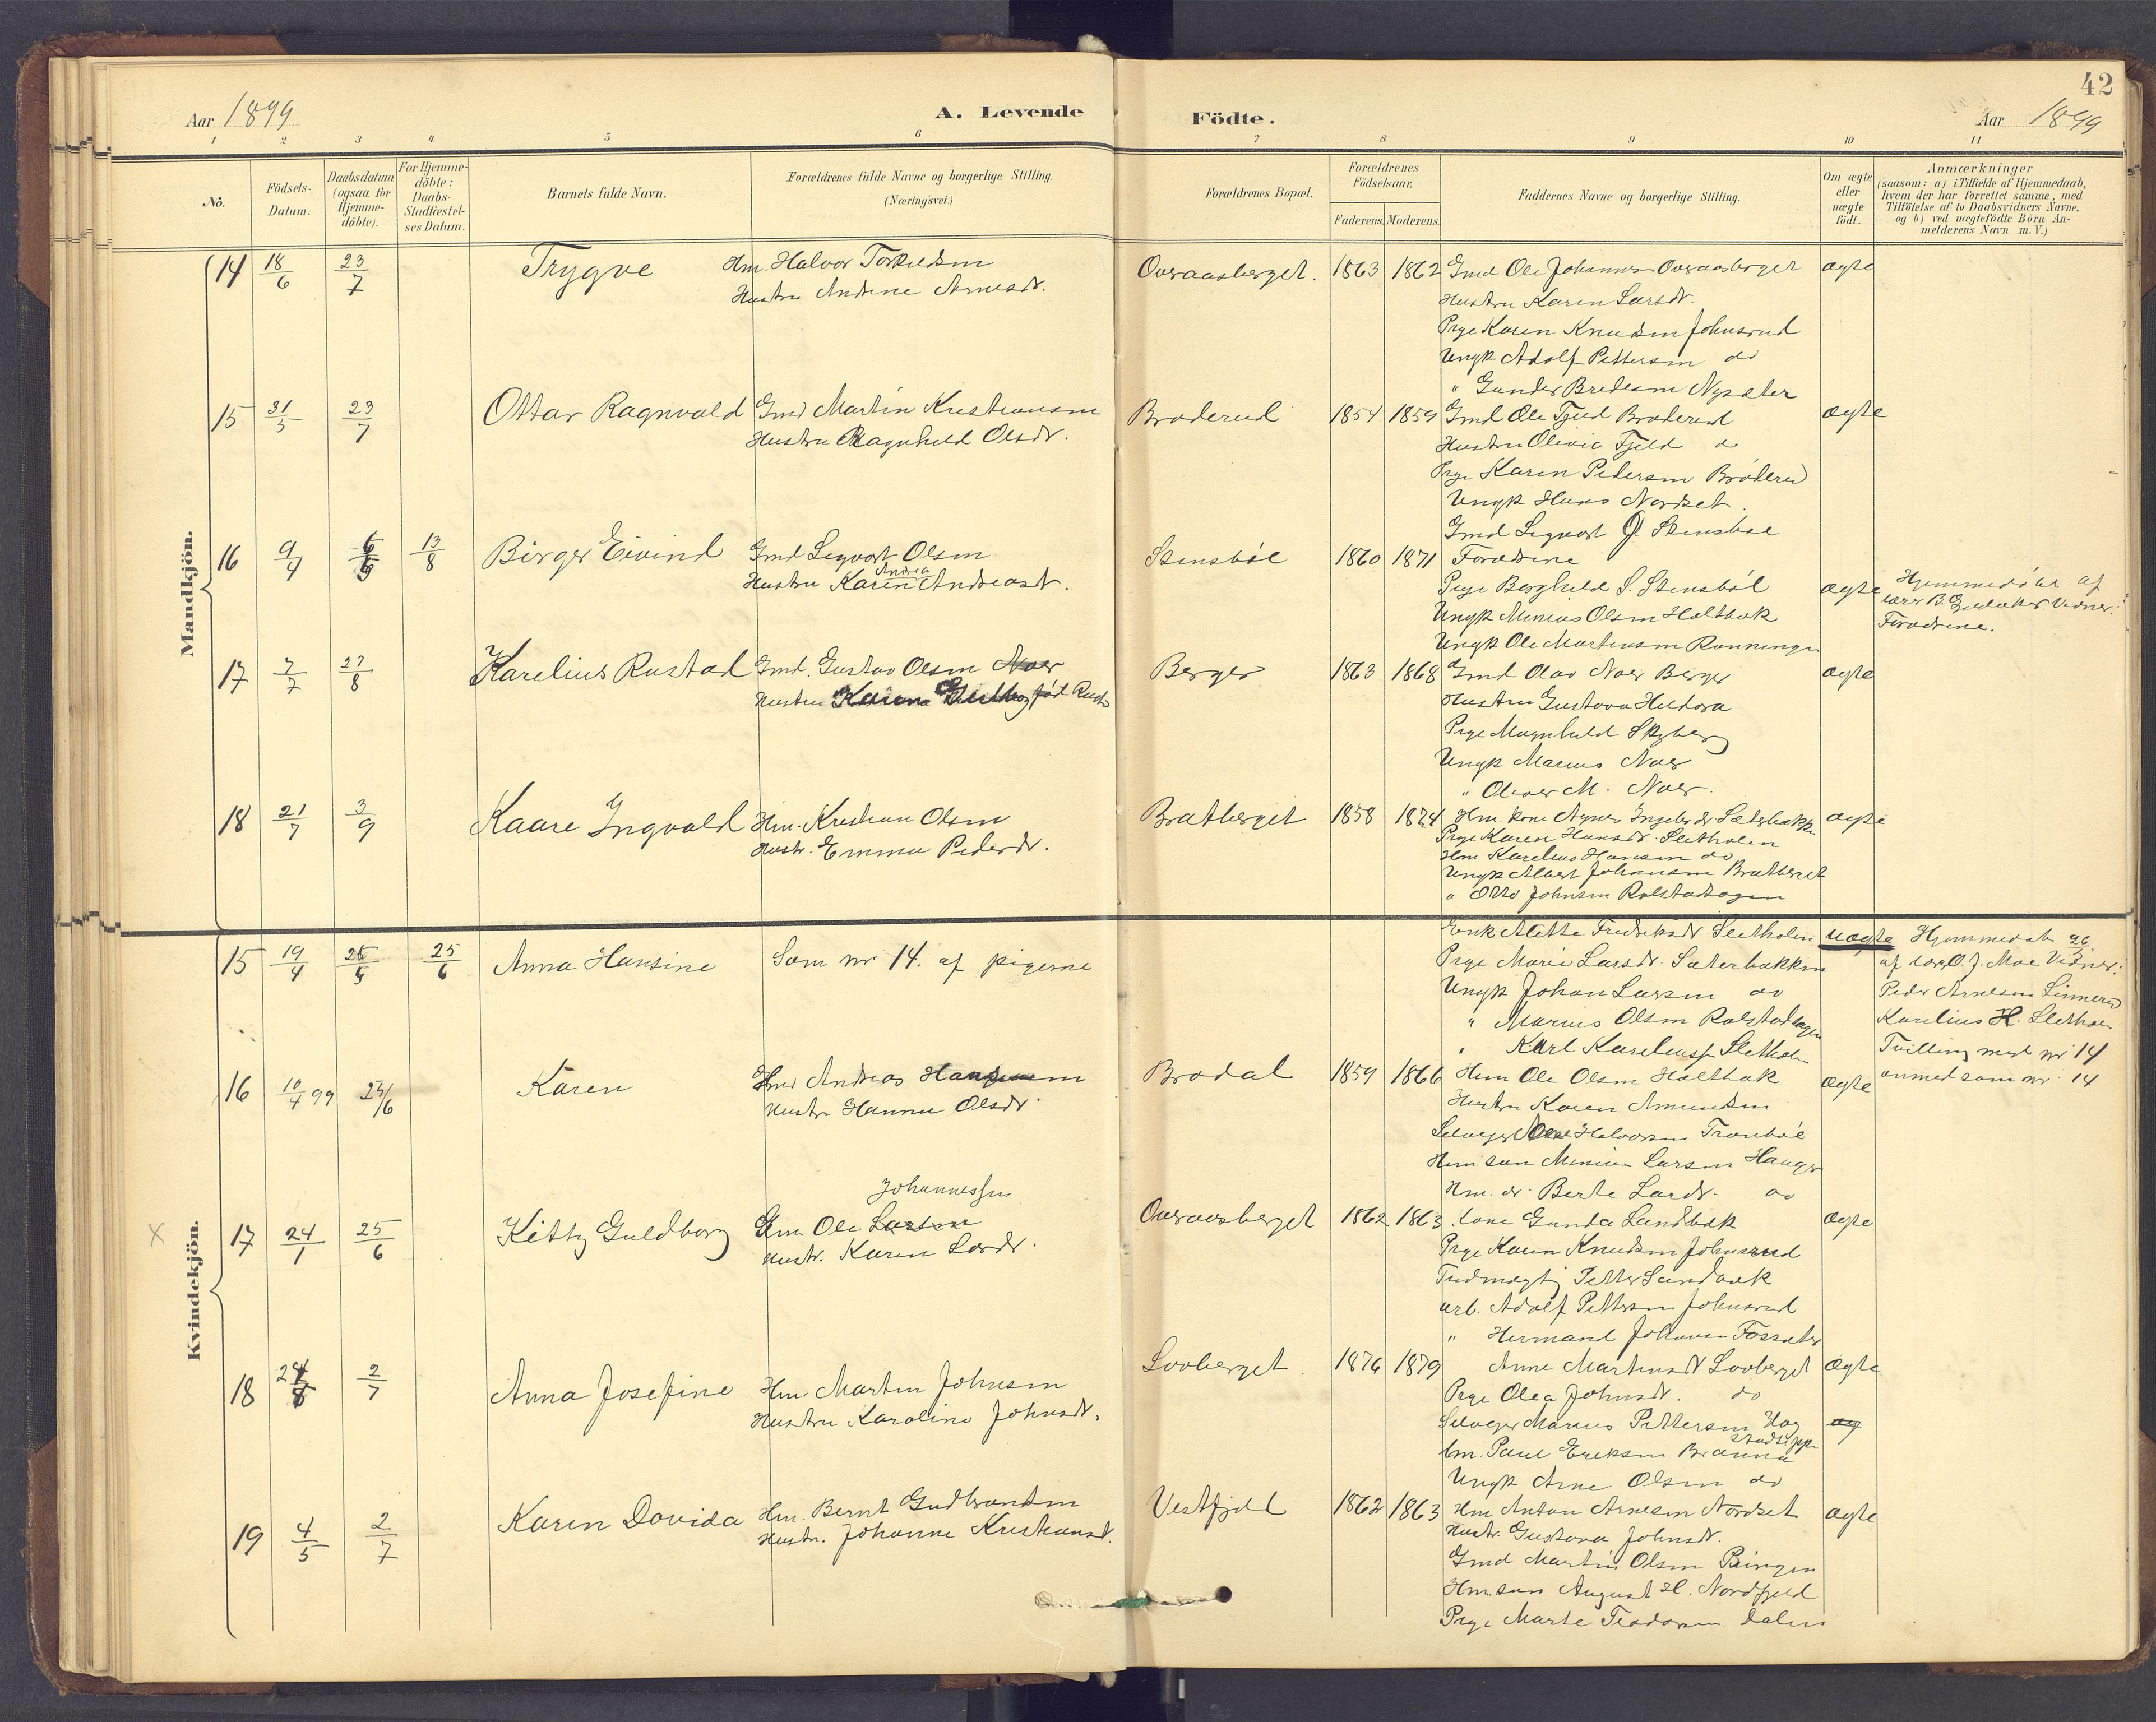 42
Aar 1899
A. Levende Födte.
Aar 1899
1 2 3 4 5 6 7 8 9 10 11
No.
Födsels-Datum.
Daabsdatum (ogsaa for Hjemmedöbte).
For Hjemmedöbte: Daabs-Stadfæstelses Datum.
Barnets fulde Navn.
Forældrenes fulde Navne og borgerlige Stilling.
(Næringsvei.)
Forældrenes Bopæl.
Forældrenes Födselsaar.
Faderens. Moderens.
Faddernes Navne og borgerlige Stilling.
Om ægte eller uægte födt.
Anmærkninger
(saasom: a) i Tilfælde af Hjemmedaab,
hvem der har forrettet samme, med
Tilföielse af to Daabsvidners Navne,
og b) ved uegtefödte Börn An-
melderens Navn m. V.)
Mandkjön.
14 18/6 23/7 Trygve Hm. Halvor Torkildsen Overaasberget. 1863 1862 Gmd Ole Johannes Overaasberget ægte
Hustru Andrine Arnesdr. Hustru Karen Larsdr.
Pige Karen Knudsen Johnsrud
Ungk Adolf Pettersen do
" Gunder Bredesen Nysæter
15 31/5 23/7 Ottar Ragnvald Gmd Martin Kristiansen Broderud 1854 1859 Gmd Ole Fjeld Broderud ægte
Hustru Ragnhild Olsdr. Hustru Olivia Fjeld do
Pige Karen Pedersen Bröderud
Ungk Hans Nordset
Gmd Sigvart O. Stensböl
16 9/4 13/8 Birger Eivind Gmd Sigvart Olsen Stensböl 1860 1871 Forældrene
Andrea
Hustru Karen Andreasdr. Pige Borghild S. Stensböl ægte Hjemmedöbt af
Ungk Minius Olsen Holtbak lærer B. Vidner:
Ungk Ole Martinsen Rønningen Forældrene.
17 7/7 27/8 Karelius Rustad Gmd. Gustav Olsen Noer Berger 1863 1868 Gmd Olav Noer Berger ægte
Hustru Karen født Hustru Gustava Hildora
Pige Magnhild Skyberg
Ungk Marius Noer
" Oliver M. Noer.
18 21/7 3/9 Kaare Ingvald Hm. Kristian Olsen Bratberget 1858 1874 Hm. kone Agnes Ingebr.dr Sæterbakken ægte
Hustr. Emma Pedersdr. Pige Karen Hansdr. Sletholen
Hm Karelius Hansen do
Ungk Albert Johansen Bratberget
" Otto Johnsen Rolstadsagen
Kvindekjön.
15 19/4 25/6 Anna Hansine Som nr 14. af pigerne Enk Alette Fredriksdr Sletholen uægte Hjemmedöbt
Pige Marie Larsdr. Sæterbakken af lærer O. J. Moe Vidner:
Ungk Johan Larsen do Peder Arnesen Linnerud
" Marius Olsen Rolstadsagen Karelius H. Sletholen
" Karl Kareliuss. Sletholen Tvilling med nr 14
16 10/4 99 25/6 Karen Hm Andreas Hansen Brodal 1859 1866 Hm Ole Olsen Holtbak ægte anmed som nr 14
Hustr Hanna Olsdr. Hustru Karen Amundsen
Selveier Halvorsen Tranböl
Hm søn Minius Larsen Hauger
Hm. dr. Berte Larsdr. do
Johannessen
17 24/1 25/6 Kitty Guldborg Gm. Ole Larsen Overaasberget 1862 1863 kone Gunda Sandbæk ægte
Hustr. Karen Larsdr. Pige Karen Knudsen Johnsrud
Petter Sandbæk
arb. Adolf Pettersen Johnsrud
" Hermand Johansen Fossæter
18 2/7 Anna Josefine Hm. Martin Johnsen Lovberget 1876 1879 Anne Martinsdr Lovberget ægte
Hustru Karoline Johnsdr. Pige Olea Johnsdr. do
Selveier Marius Pettersen
Gm. Paul Eriksen Brænna
Ungk Arne Olsen do
19 4/5 2/7 Karen Dovida Hm. Bernt Gudbrandsen Vestfjeld 1862 1863 Hm Anton Arnesen Nordset ægte
Hustr. Johanne Kristiansdr. Hustr. Gustava Johnsdr.
Gmd Martin Olsen Bingen
Hm søn August H. Nordfjeld
Pige Marte Teodorsen Dalen